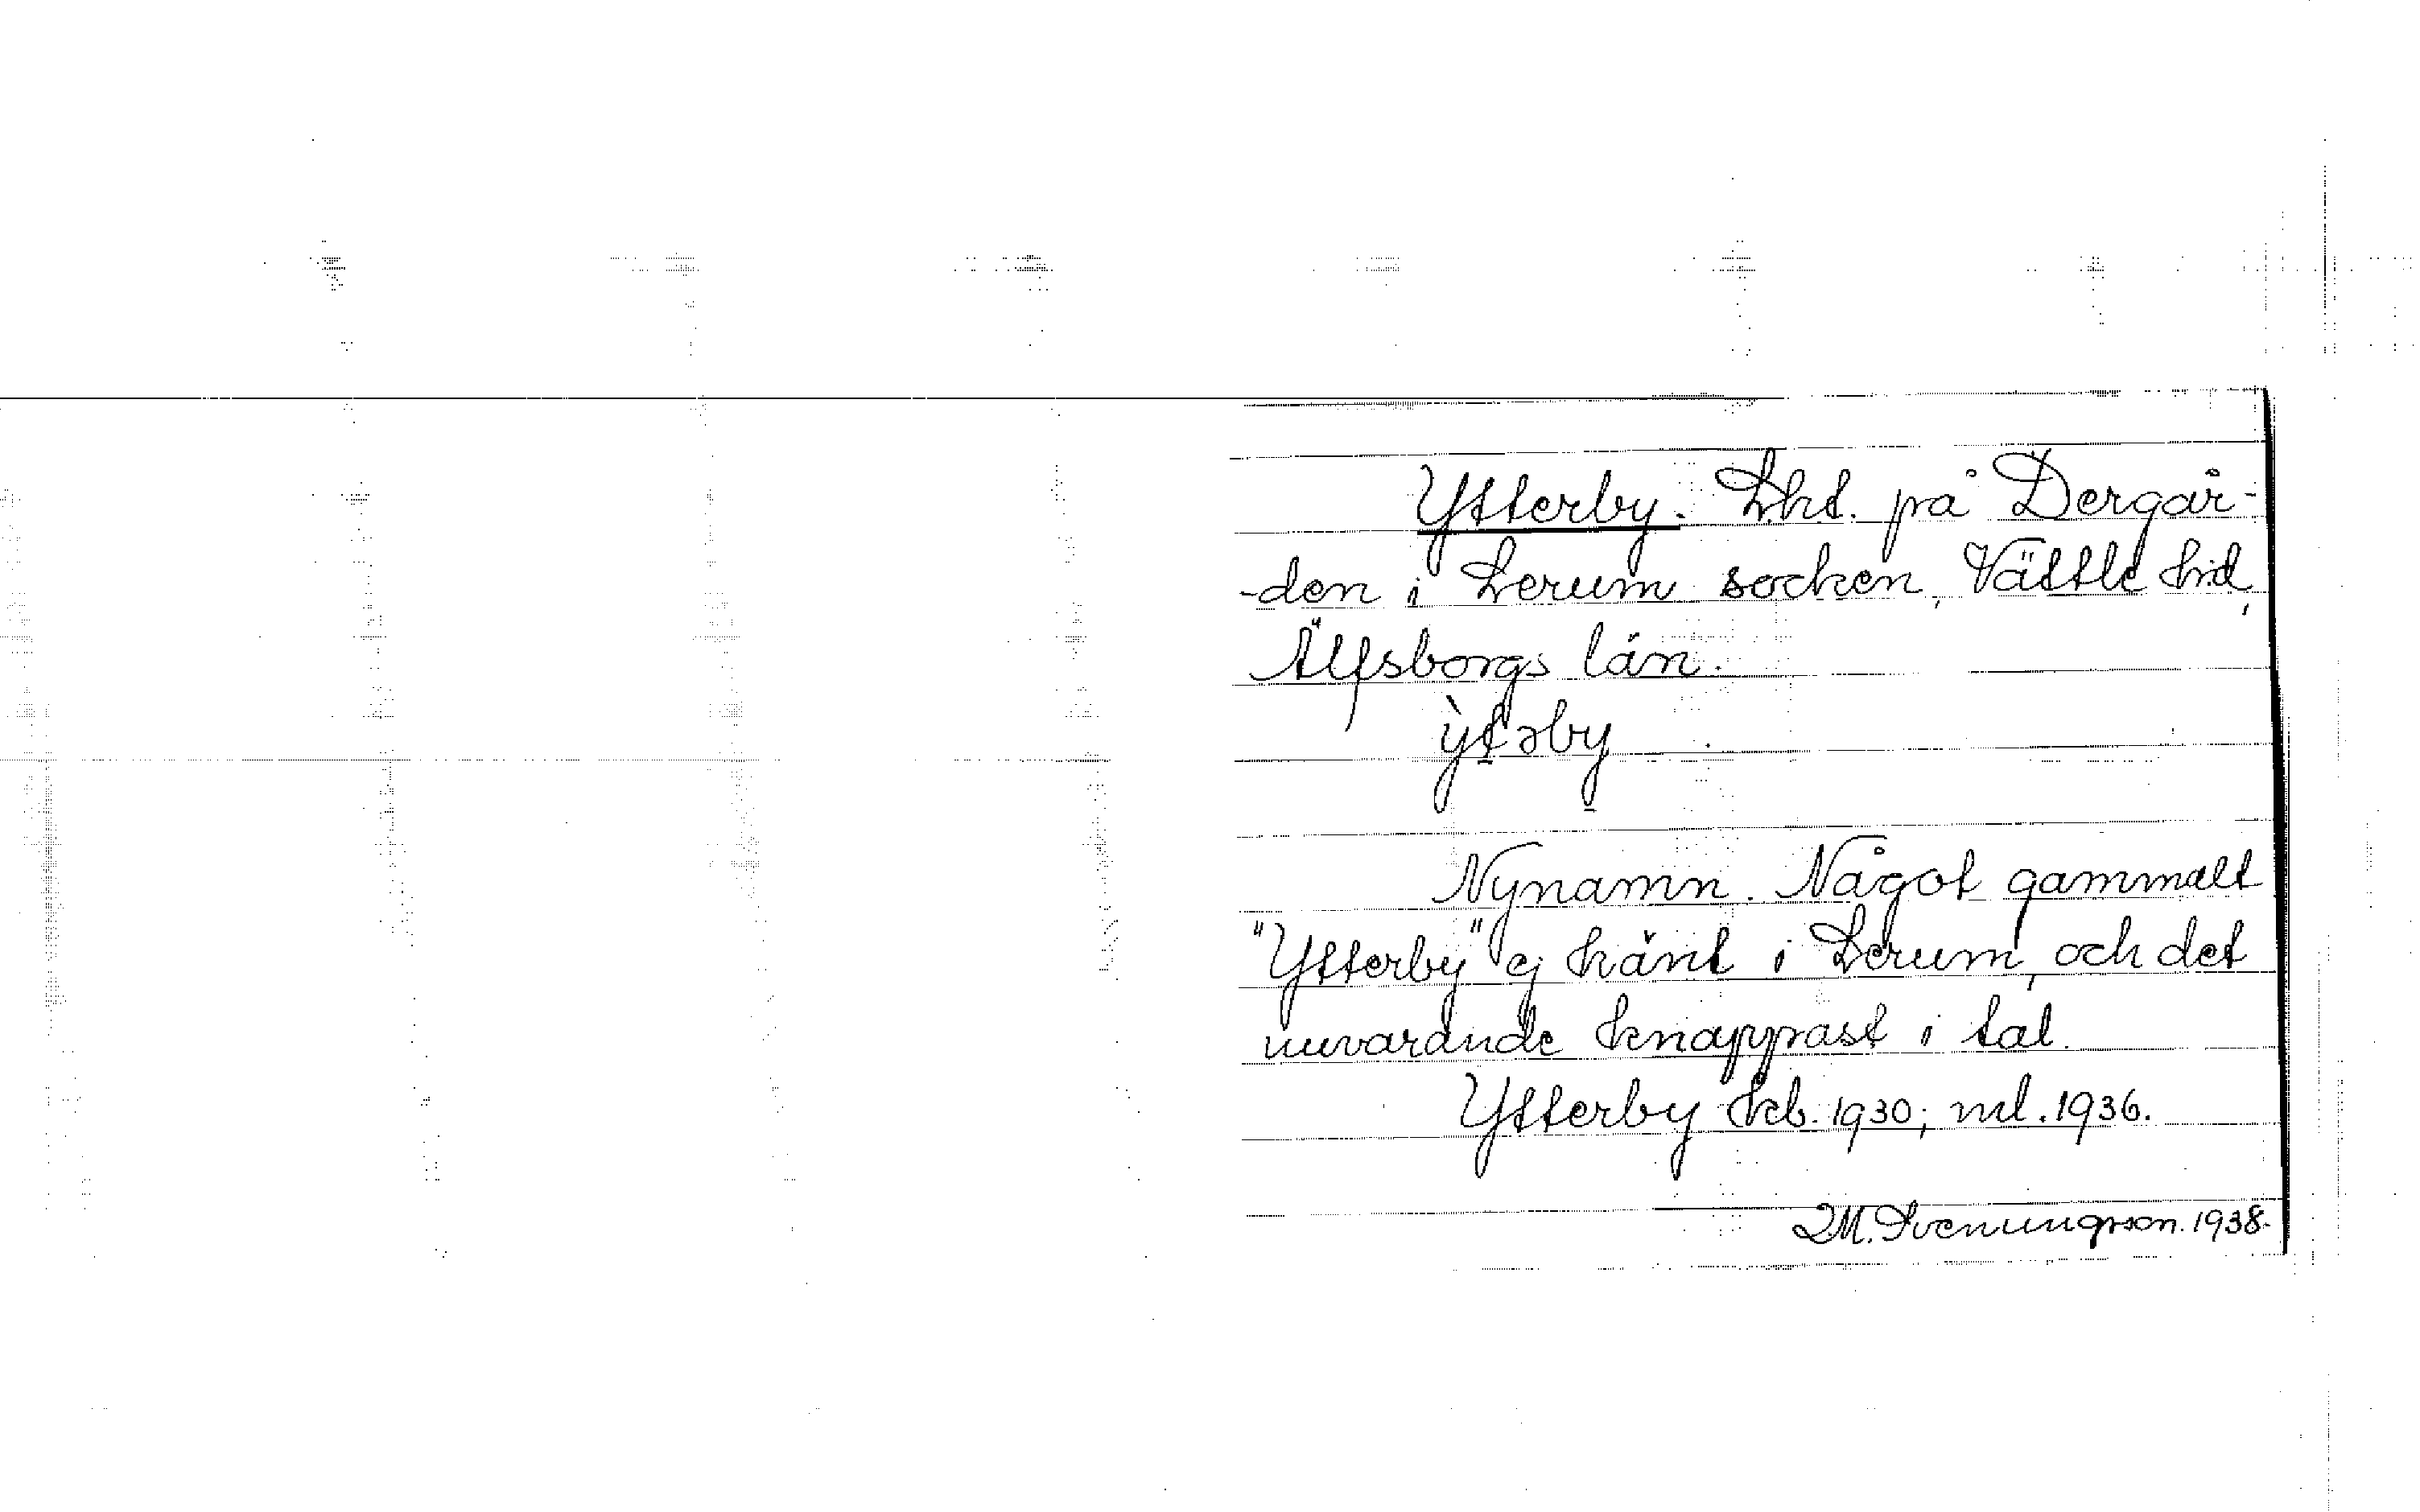 Ytterby. Lht. på Dergår-
-den i Lerum socken, Vättle hd,
Älfsborgs län.
ỳtəby
Nynamn. Något gammalt
"Ytterby" ej känt i Lerum, och det
nuvarande knappast i tal.
Ytterby kb. 1930; ml. 1936.
M. Svenungsson. 1938.